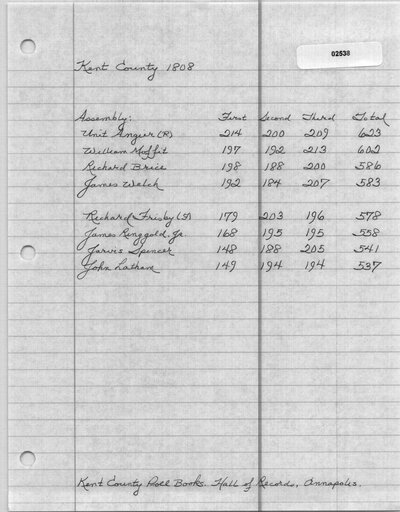 02538
Kent County 1808
Assembly: First Second Third Total
Unit Angier (R) 214 200 209 623
William Moffit 197 192 213 602
Richard Brice 198 188 200 586
James Welch 192 184 207 583
Richard Frisby (F) 179 203 196 578
James Ringgold, Jr. 168 195 195 558
Jarvis Spencer 148 188 205 541
John Latham 149 194 194 537
Kent County Poll Books. Hall of Records, Annapolis.